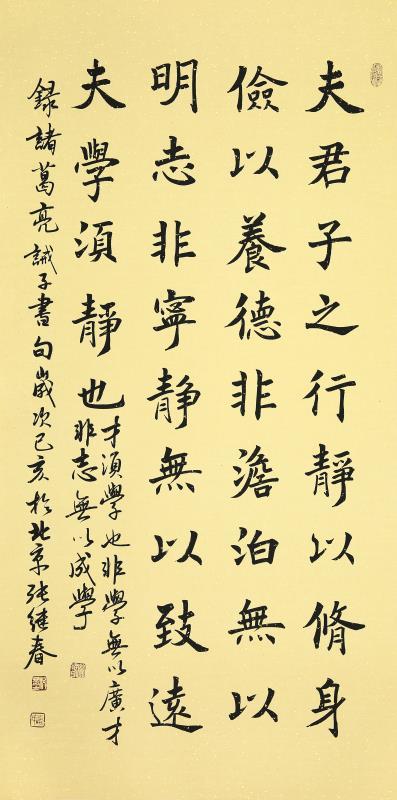 夫君子之行靜以脩身
儉以養德非澹泊無以
明志非寧静無以致遠
夫學須靜也
才須學也非學無以廣才
非志無以成學
錄諸葛亮誡子書句歲次己亥於北京張继春